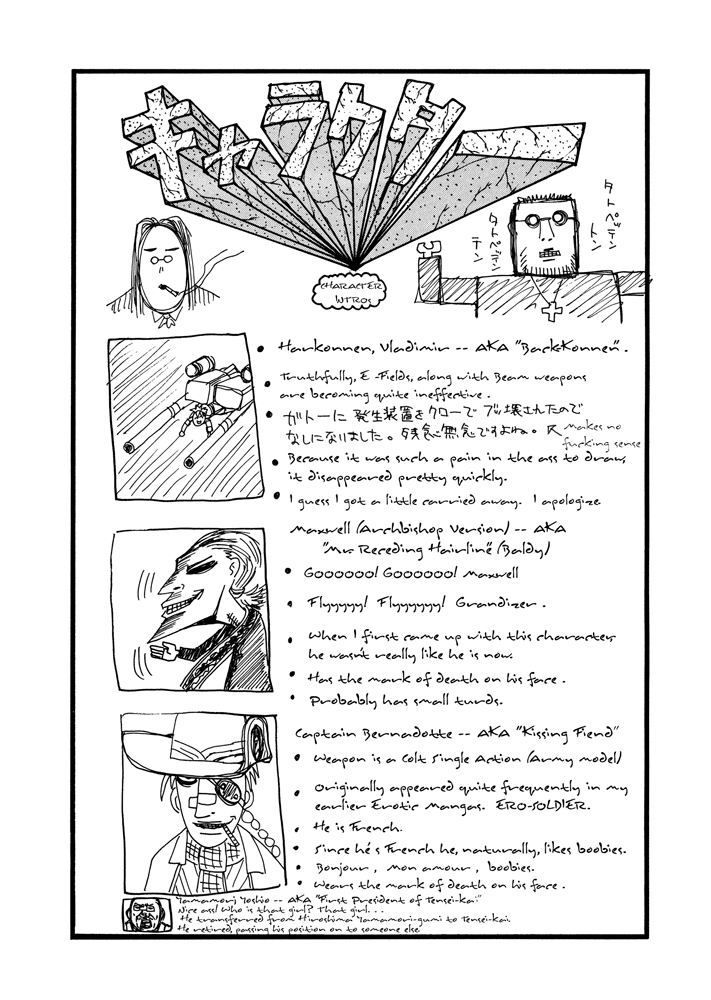 キャラクター
CHARACTER
INTROS
タトペッテン
トン
タトペッテン
テン
Harkonnen, Vladimir -- AKA "Back-Konnen".
• Truthfully, E-Fields, along with Beam weapons
are becoming quite ineffective.
• ガトーに発生装置をクローでブッ壊されたので
なしになりました。残念無念ですよね。 makes no
fucking sense
• Because it was such a pain in the ass to draw,
it disappeared pretty quickly.
• I guess I got a little carried away. I apologize
Maxwell (Archbishop Version) -- AKA
"Mr. Receding Hairline" (Baldy)
• Goooooo! Goooooo! Maxwell
• Flyyyyy! Flyyyyyy! Grandizer.
• When I first came up with this character,
he wasn't really like he is now.
• Has the mark of death on his face.
• Probably has small turds.
Captain Bernadotte -- AKA "Kissing Fiend"
• Weapon is a Colt Single Action (Army model)
• Originally appeared quite frequently in my
earlier Erotic Mangas. ERO-SOLDIER.
• He is French.
• Since he's French he, naturally, likes boobies.
• Bonjour, mon amour, boobies.
• Wears the mark of death on his face.
Yamamori Yoshio -- AKA "First President of Tensei-Kai"
Nice ass! Who is that girl? That girl...
He transferred from Hiroshima Yamamori-gumi to Tensei-kai.
He retired, passing his position on to someone else